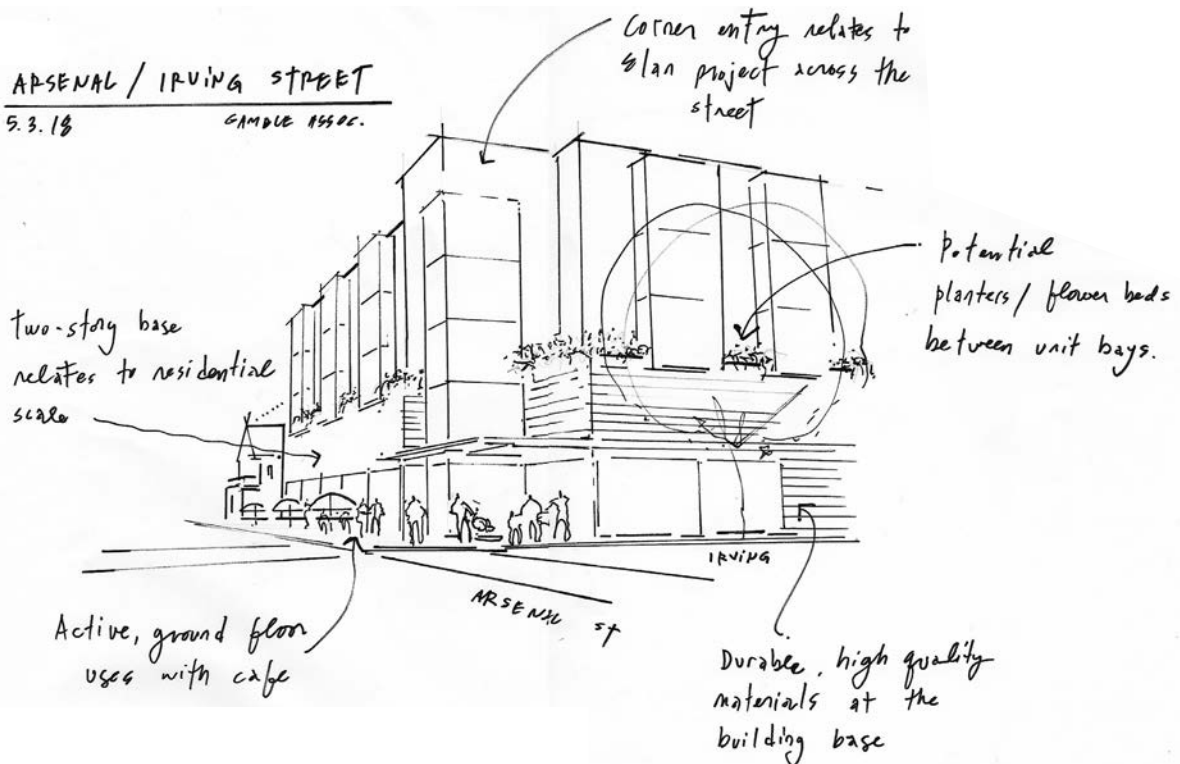 ARSENAL / IRVING STREET
5.3.18 GAMBLE ASSOC.
Corner entry relates to
Elan project across the
street
Potential
planters/flower beds
between unit bays.
Two-story base
relates to residential
scale
IRVING
ARSENAL ST
Active, ground floor
uses with cafe
Durable, high quality
materials at the
building base